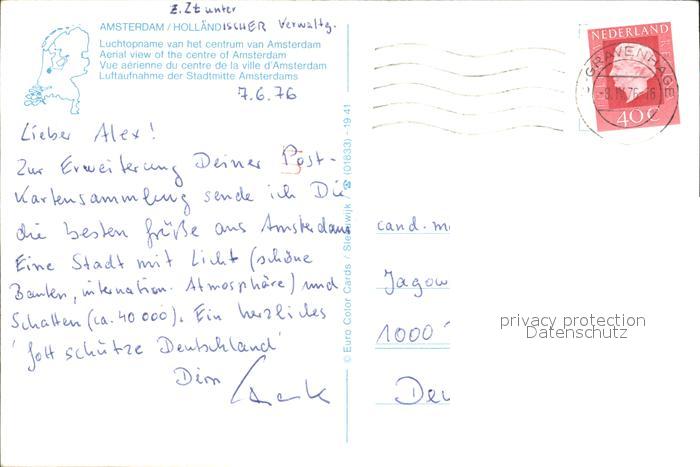 z. Zt unter
AMSTERDAM / HOLLÄNDISCHER Verwaltg.
Luchtopname van het centrum van Amsterdam
Aerial view of the centre of Amsterdam
Vue aérienne du centre de la ville d'Amsterdam
Luftaufnahme der Stadtmitte Amsterdams
7.6.76
Lieber Alex!
Zur Erweiterung Deiner Post-
kartensammlung sende ich Dir
die besten Grüße aus Amsterdam
Eine Stadt mit Licht (schöne
Bauten, internation. Atmosphäre) und
Schatten (ca. 40 000). Ein herzliches
'Gott schütze Deutschland'
Dein
© Euro Color Cards / Sleeuwijk / ☎ (01833) - 19 41
NEDERLAND
40 C
'S-GRAVENHAGE
cand. m
Jagow
1000
Deu
privacy protection
Datenschutz